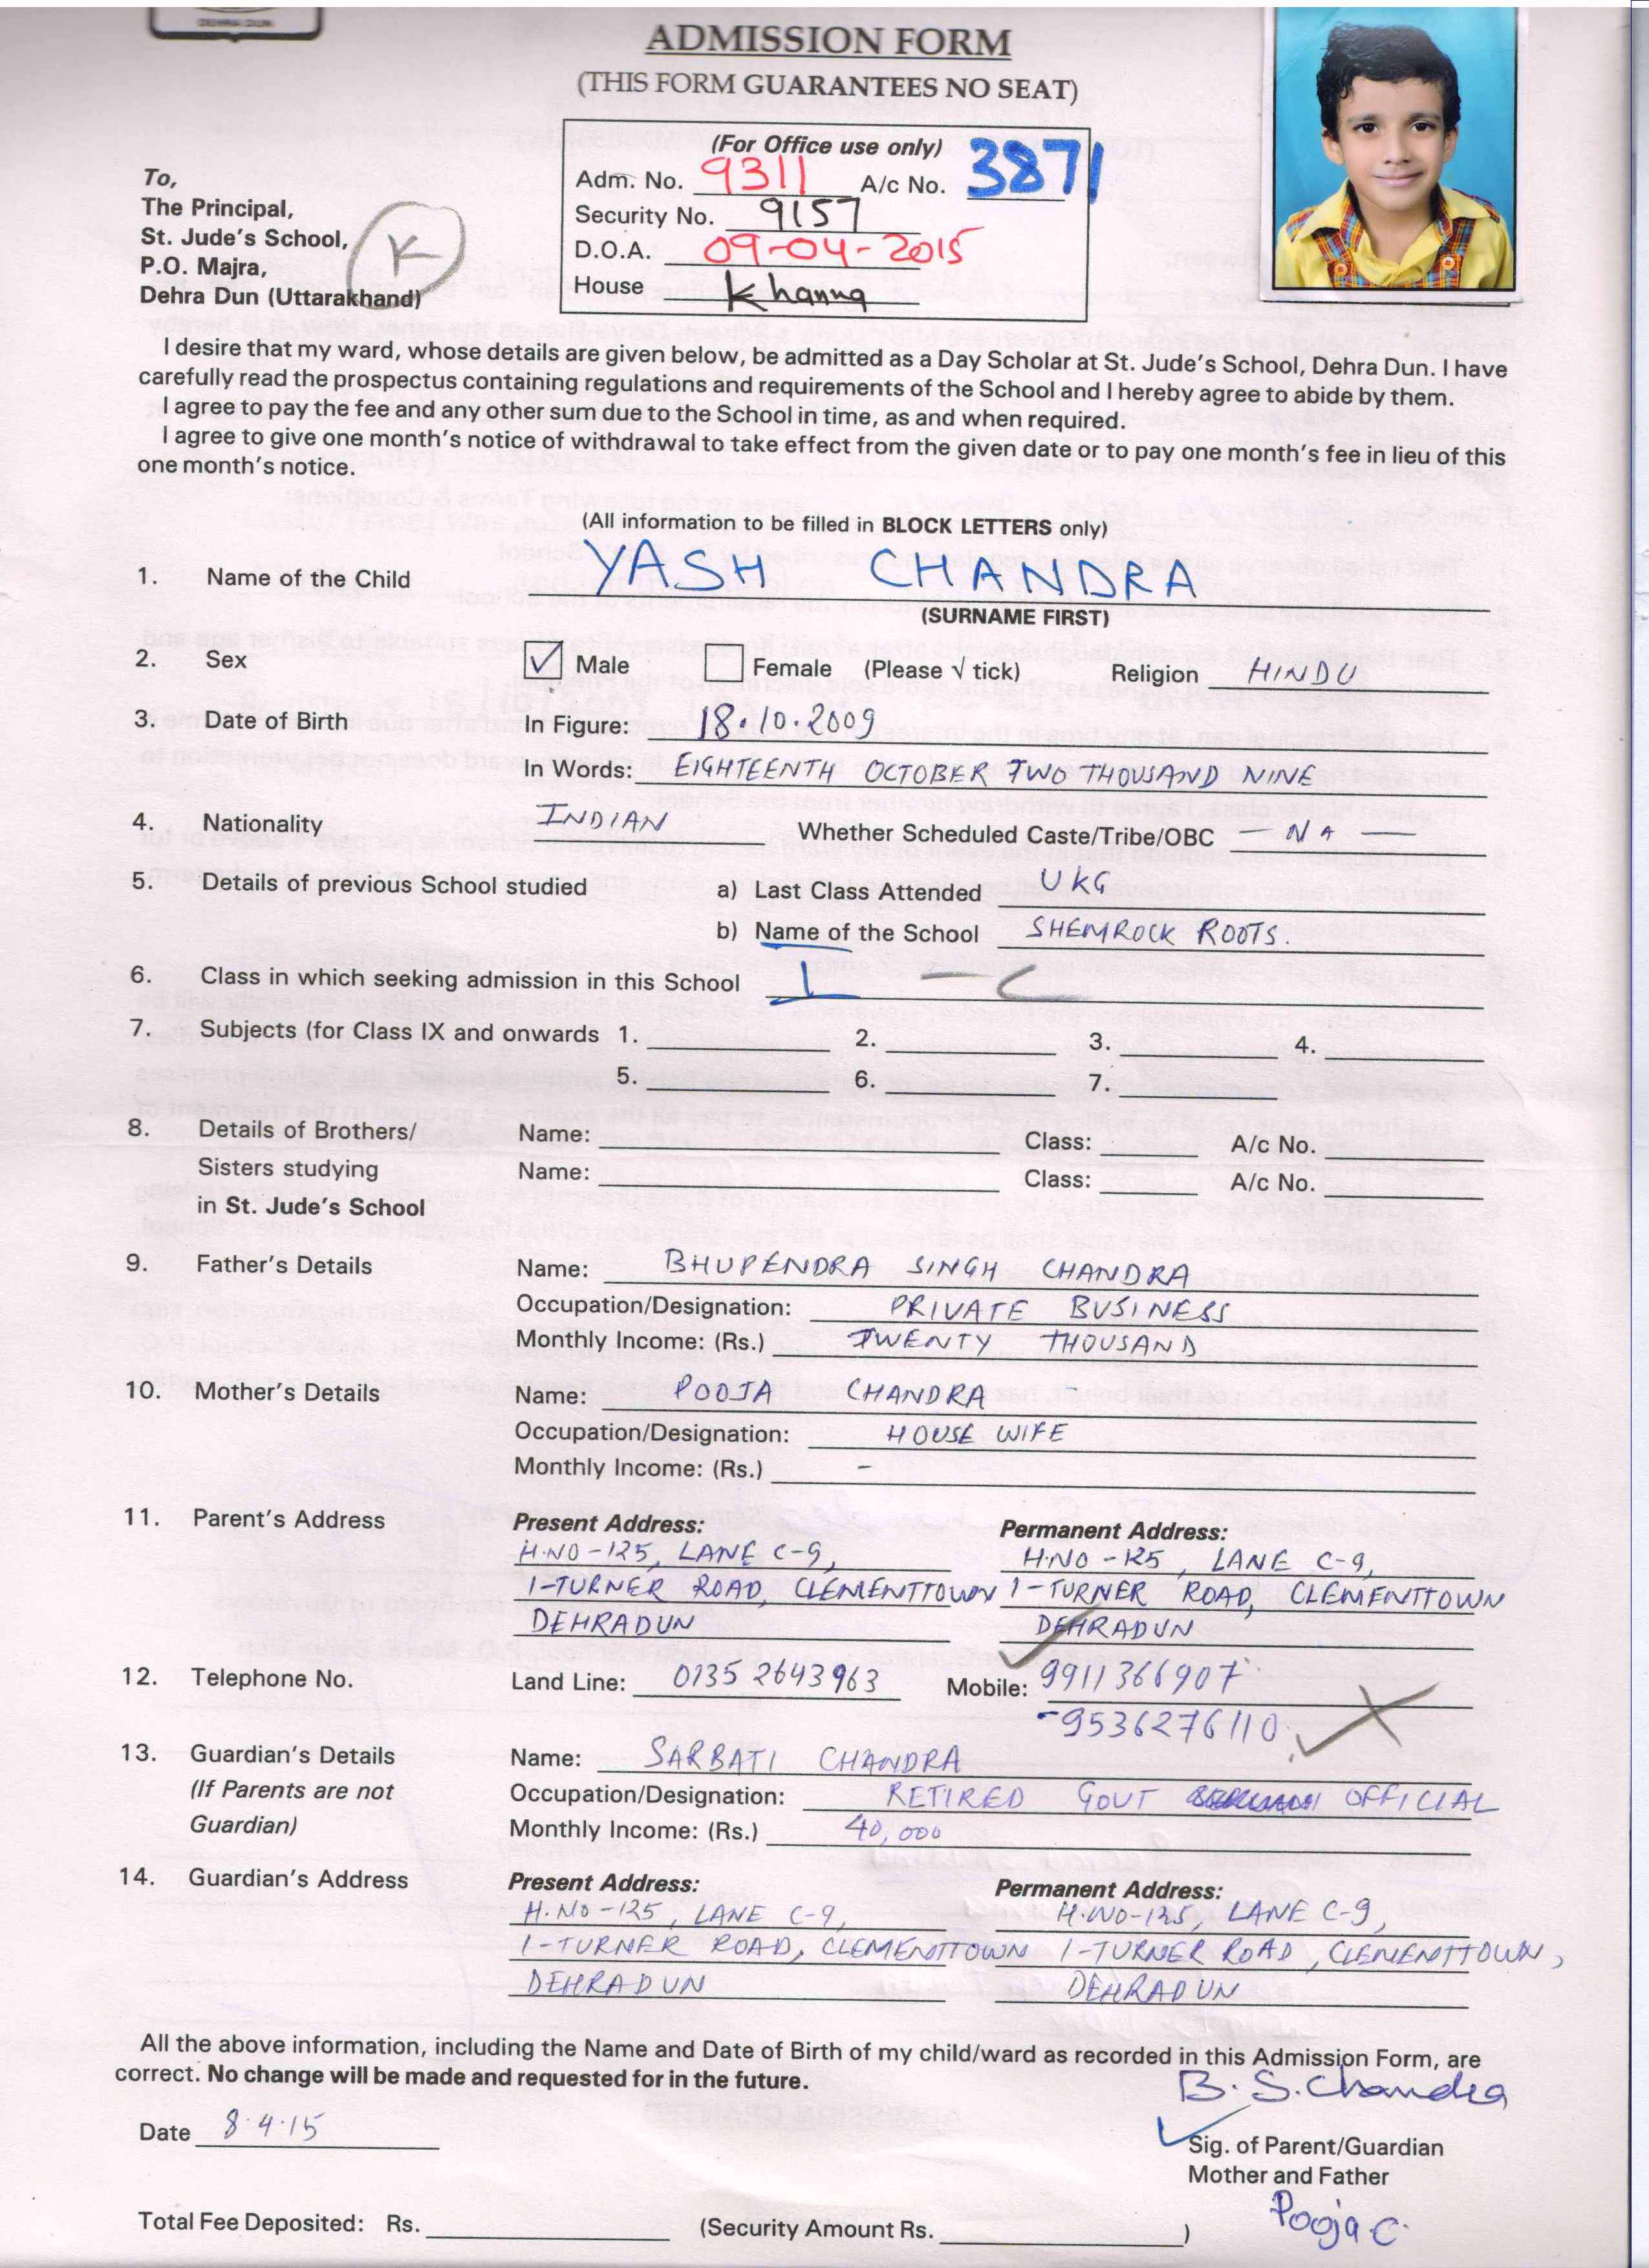 DEHRA DUN
ADMISSION FORM
(THIS FORM GUARANTEES NO SEAT)
(For Office use only)
Adm. No. 9311 A/c No. 3871
Security No. 9157
D.O.A. 09-04-2015
House Khanna
To,
The Principal,
St. Jude's School,
P.O. Majra,
Dehra Dun (Uttarakhand)
K
I desire that my ward, whose details are given below, be admitted as a Day Scholar at St. Jude's School, Dehra Dun. I have
carefully read the prospectus containing regulations and requirements of the School and I hereby agree to abide by them.
I agree to pay the fee and any other sum due to the School in time, as and when required.
I agree to give one month's notice of withdrawal to take effect from the given date or to pay one month's fee in lieu of this
one month's notice.
(All information to be filled in BLOCK LETTERS only)
1. Name of the Child YASH CHANDRA
(SURNAME FIRST)
2. Sex ✓ Male Female (Please √ tick) Religion HINDU
3. Date of Birth In Figure: 18.10.2009
In Words: EIGHTEENTH OCTOBER TWO THOUSAND NINE
4. Nationality INDIAN Whether Scheduled Caste/Tribe/OBC — NA —
5. Details of previous School studied a) Last Class Attended UKG
b) Name of the School SHEMROCK ROOTS.
6. Class in which seeking admission in this School I - C
7. Subjects (for Class IX and onwards 1. 2. 3. 4.
5. 6. 7.
8. Details of Brothers/ Name: Class: A/c No.
Sisters studying Name: Class: A/c No.
in St. Jude's School
9. Father's Details Name: BHUPENDRA SINGH CHANDRA
Occupation/Designation: PRIVATE BUSINESS
Monthly Income: (Rs.) TWENTY THOUSAND
10. Mother's Details Name: POOJA CHANDRA
Occupation/Designation: HOUSE WIFE
Monthly Income: (Rs.) -
11. Parent's Address Present Address: Permanent Address:
H.NO-125, LANE C-9, H.NO-125, LANE C-9,
1-TURNER ROAD, CLEMENTTOWN 1-TURNER ROAD, CLEMENTTOWN
DEHRADUN DEHRADUN
12. Telephone No. Land Line: 0135 2643963 Mobile: 9911366907
-9536276110
13. Guardian's Details Name: SARBATI CHANDRA
(If Parents are not Occupation/Designation: RETIRED GOVT OFFICIAL
Guardian) Monthly Income: (Rs.) 40,000
14. Guardian's Address Present Address: Permanent Address:
H.NO-125, LANE C-9, H.NO-125, LANE C-9,
1-TURNER ROAD, CLEMENTTOWN 1-TURNER ROAD, CLEMENTTOWN,
DEHRADUN DEHRADUN
All the above information, including the Name and Date of Birth of my child/ward as recorded in this Admission Form, are
correct. No change will be made and requested for in the future.
B. S. Chandra
Date 8.4.15
Sig. of Parent/Guardian
Mother and Father
Pooja C.
Total Fee Deposited: Rs. (Security Amount Rs. )